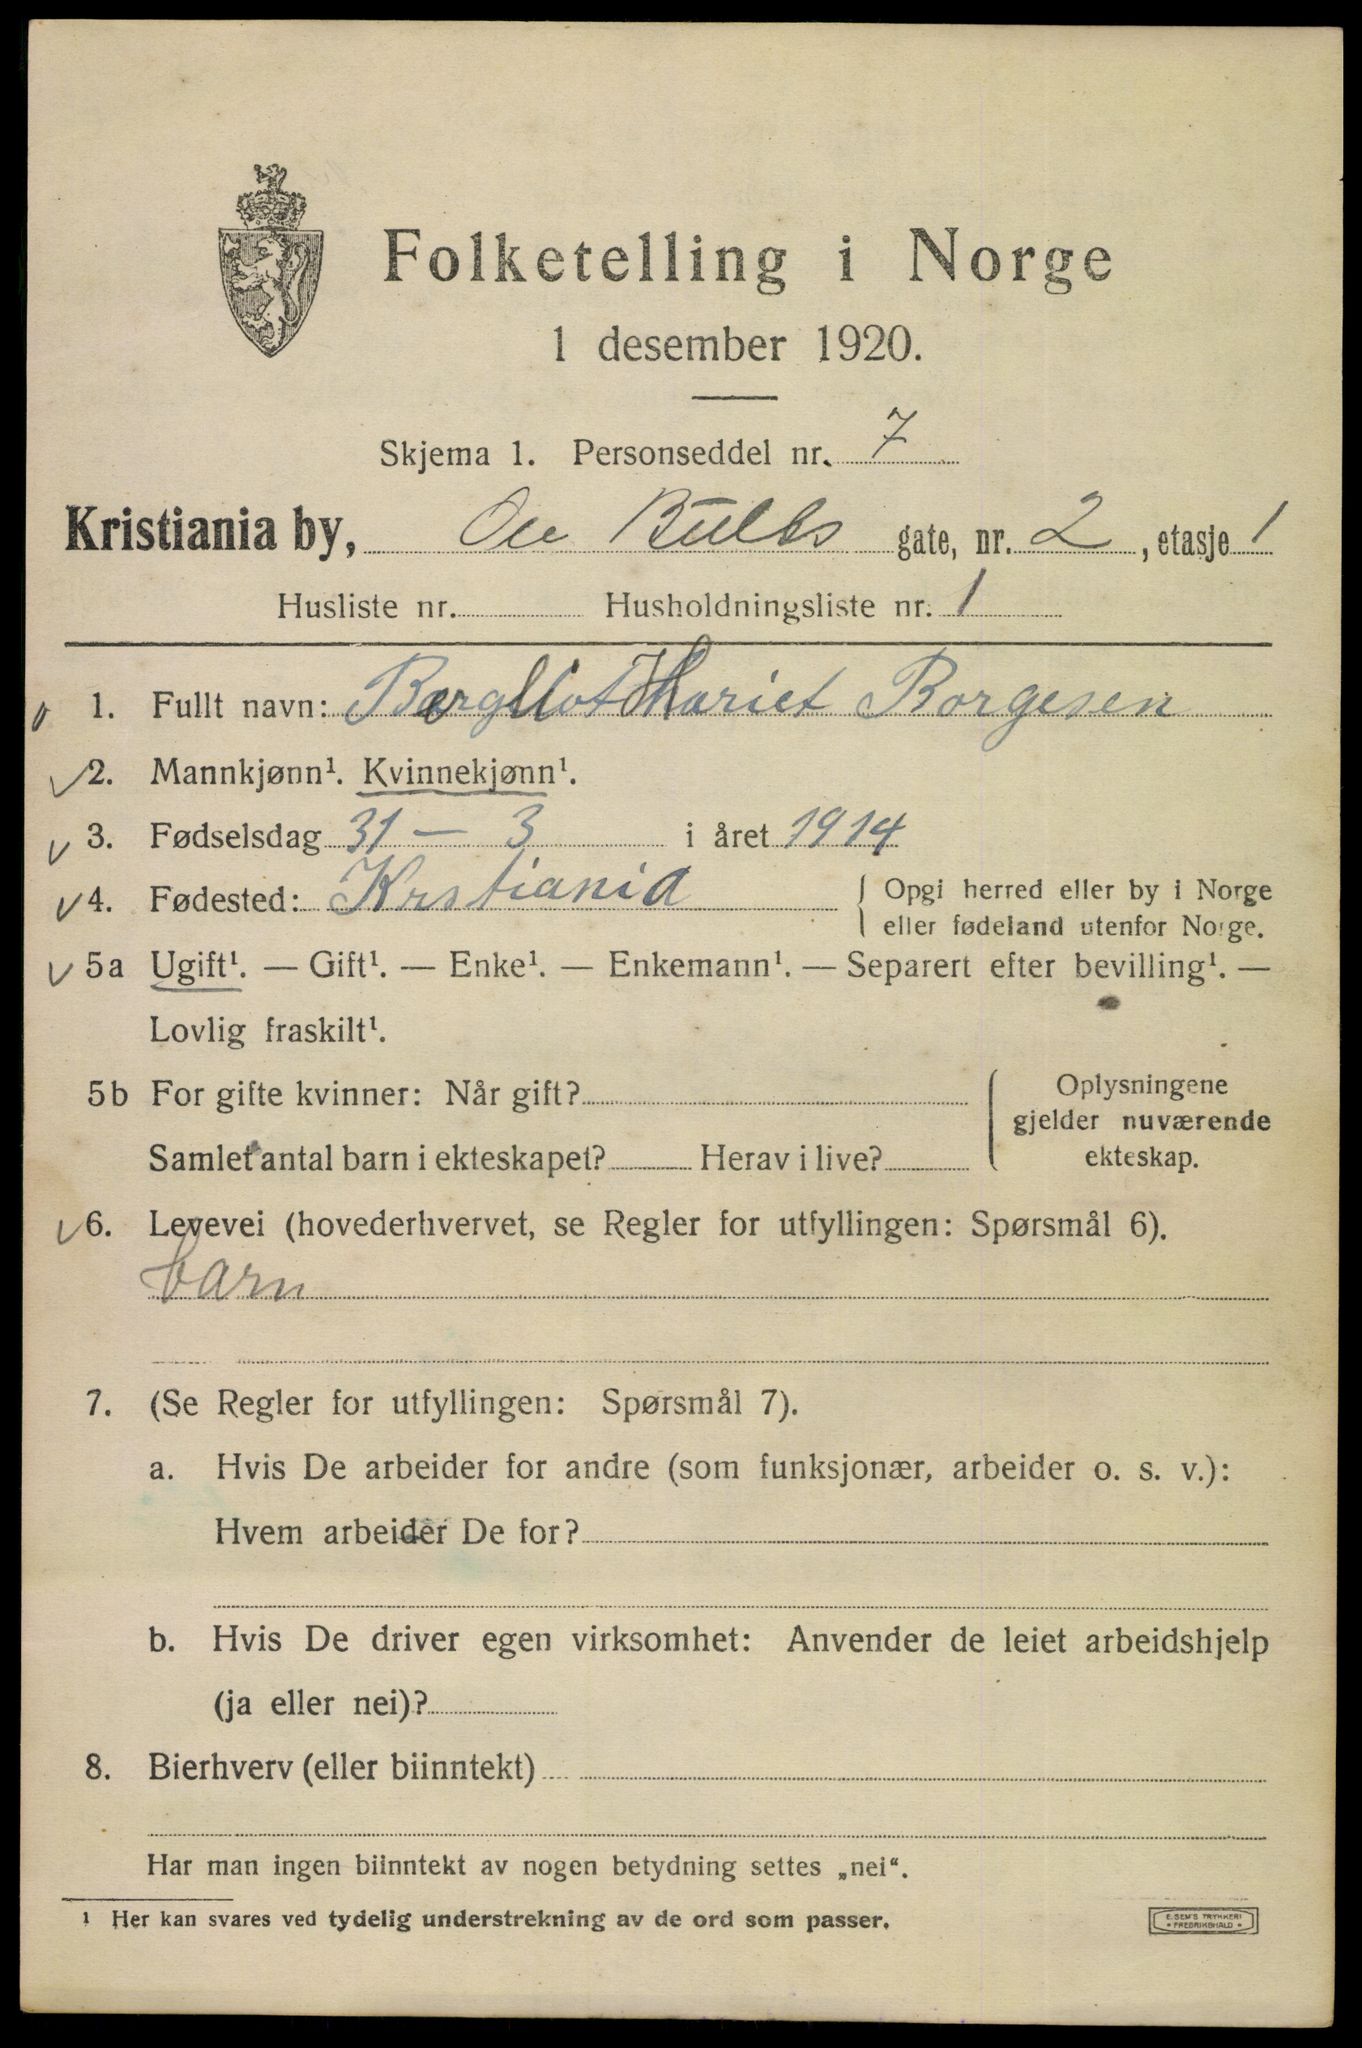 Folketelling i Norge
1 desember 1920.
Skjema 1. Personseddel nr. 7
Kristiania by, Ole Bulls gate, nr. 2, etasje 1
Husliste nr. Husholdningsliste nr. 1
1. Fullt navn: Bergliot Hariet Borgesen
2. Mannkjønn¹. Kvinnekjønn¹.
3. Fødselsdag 31 — 3 i året 1914
4. Fødested: Krstiania { Opgi herred eller by i Norge
eller fødeland utenfor Norge.
5a Ugift¹. — Gift¹. — Enke¹. — Enkemann¹. — Separert efter bevilling¹. —
Lovlig fraskilt¹.
5b For gifte kvinner: Når gift? { Oplysningene
gjelder nuværende
Samlet antal barn i ekteskapet? Herav i live? ekteskap.
6. Levevei (hovederhvervet, se Regler for utfyllingen: Spørsmål 6).
barn
7. (Se Regler for utfyllingen: Spørsmål 7).
a. Hvis De arbeider for andre (som funksjonær, arbeider o. s. v.):
Hvem arbeider De for?
b. Hvis De driver egen virksomhet: Anvender de leiet arbeidshjelp
(ja eller nei)?
8. Bierhverv (eller biinntekt)
Har man ingen biinntekt av nogen betydning settes „nei“.
¹ Her kan svares ved tydelig understrekning av de ord som passer.
E. SEM'S TRYKKERI
• FREDRIKSHALD •